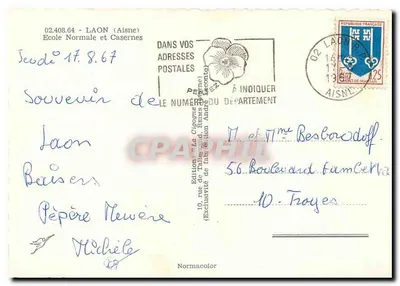 02.408.64 - LAON (Aisne)
Ecole Normale et Casernes
Jeudi 17.8.67
Souvenir de
Laon
Baisers
Pépère Mémère
Michèle
DANS VOS
ADRESSES
POSTALES
PENSEZ A INDIQUER
LE NUMÉRO DU DÉPARTEMENT
02 LAON
AISNE
REPUBLIQUE FRANÇAISE
0,25
Edition "La Cigogne"
10, rue de Talleyrand, REIMS (Marne)
(Exclusivité de fabrication André Leconte)
M et Mme Besborodoff
56 Boulevard Gambetta
10 - Troyes
Normacolor